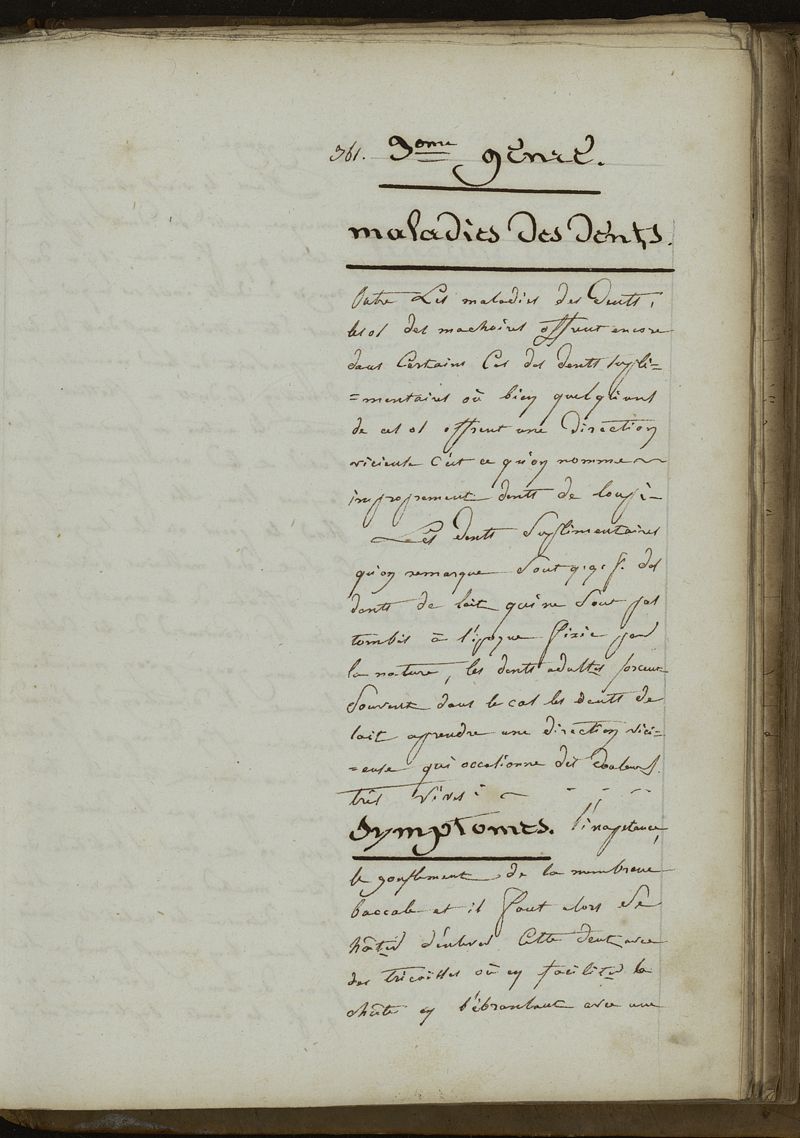 361. 9eme genre.
maladies des dents.
Outre Les maladies des Dents,
les os des machoires offrent encore
dans Certains Cas des dents supli=
=mentaires où bien quelqu'uns
de ces os offrent une Direction
vicieuse c'est ce qu'on nomme ~
improprement dents de loup.-
Les dents Suplimentaires
qu'on remarque Sont q.q.f. des
dents de lait qui ne Sont pas
tombés à l'époque fixée par
la nature, les dents adultes forcent
Souvent dans le cas les dents de
lait aprendre une direction vici=
=euse qui occasionne des douleurs.
très vives:
Symptomes. l'inapetence,
le gonflement de la membrane
buccale et il faut alors Se
hâter d'enlever Cette dent avec
des tricoisses où en faciliter la
chûte en l'ébranlant avec une